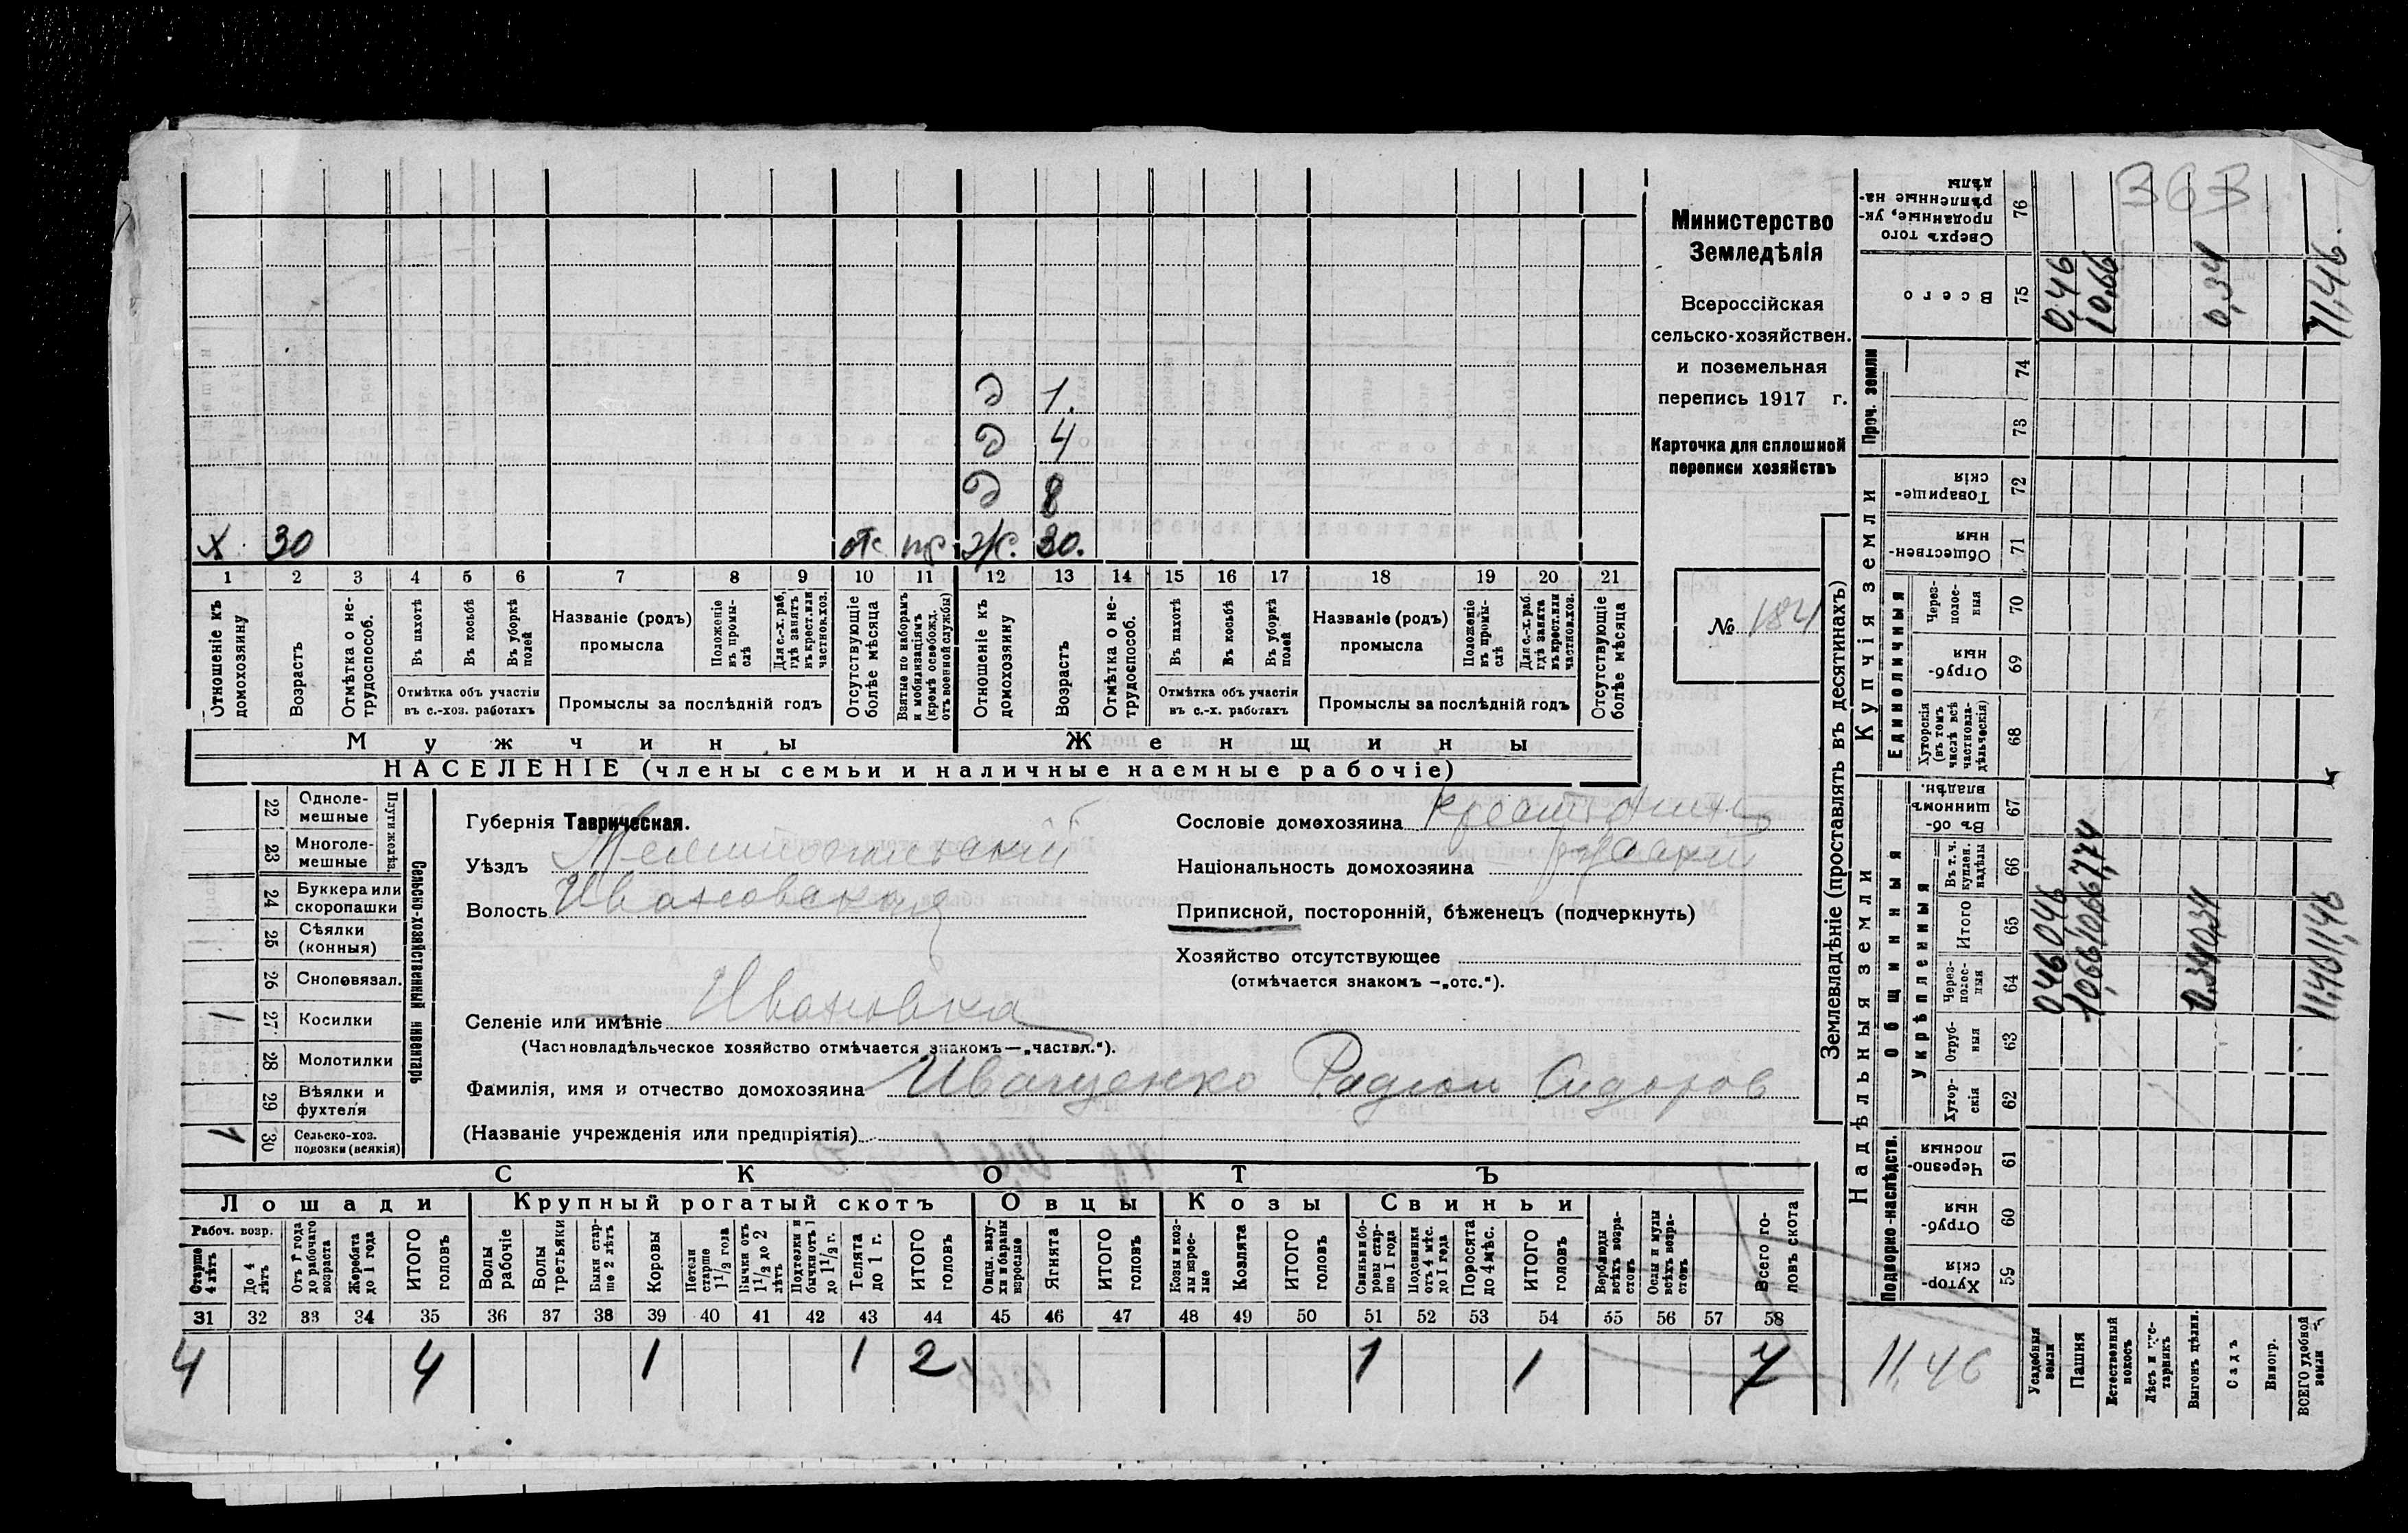 363
Министерство
Земледѣлія
Всероссійская
сельско-хозяйствен.
и поземельная
перепись 1917 г.
Карточка для сплошной
переписи хозяйствъ
№ 184
д 1.
д 4
д 8
х 30 отс пр ж. 30.
1 2 3 4 5 6 7 8 9 10 11 12 13 14 15 16 17 18 19 20 21
Отношеніе къ домохозяину
Возрастъ
Отмѣтка о не-трудоспособ.
Въ пахотѣ
Въ косьбѣ
Въ уборкѣ полей
Отмѣтка объ участіи въ с.-хоз. работахъ
Названіе (родъ) промысла
Положеніе въ промы-слѣ
Для с.-х. раб. гдѣ занятъ въ крест. или частнов. хоз.
Промыслы за послѣдній годъ
Отсутствующіе болѣе мѣсяца
Взятые по наборамъ и мобилизаціямъ (кромѣ освобожд. отъ военной службы)
Отношеніе къ домохозяину
Возрастъ
Отмѣтка о не-трудоспособ.
Въ пахотѣ
Въ косьбѣ
Въ уборкѣ полей
Отмѣтка объ участіи въ с.-х. работахъ
Названіе (родъ) промысла
Положеніе въ промы-слѣ
Для с.-х. раб. гдѣ занята въ крест. или частнов. хоз.
Промыслы за послѣдній годъ
Отсутствующіе болѣе мѣсяца
Мужчины Женщины
НАСЕЛЕНІЕ (члены семьи и наличные наемные рабочіе)
22 Одноле-мешные
23 Многоле-мешные
24 Буккера или скоропашки
25 Сѣялки (конныя)
26 Сноповязал.
27 Косилки 1
28 Молотилки
29 Вѣялки и фухтеля
30 Сельско-хоз. повозки (всякія) 1
Сельско-хозяйственный инвентарь
Губернія Таврическая.
Уѣздъ Мелитопольскій
Волость Ивановская
Сословіе домохозяина крестьянинъ
Національность домохозяина русскій
Приписной, посторонній, бѣженецъ (подчеркнуть)
Хозяйство отсутствующее
(отмѣчается знакомъ —„отс.“).
Селеніе или имѣніе Ивановка
(Частновладѣльческое хозяйство отмѣчается знакомъ—„частвл.“).
Фамилія, имя и отчество домохозяина Иващенко Радион Сидоров
(Названіе учрежденія или предпріятія)
СКОТЪ
Лошади Крупный рогатый скотъ Овцы Козы Свиньи
Рабоч. возр.
Старше 4 лѣтъ
До 4 лѣтъ
Отъ 1 года до рабочаго возраста
Жеребята до 1 года
ИТОГО головъ
Волы рабочіе
Волы третьяки
Быки стар-ше 2 лѣтъ
Коровы
Нетели старше 1 1/2 года
Бычки отъ 1 1/2 до 2 лѣтъ
Подтелки и бычки отъ 1 до 1 1/2 г.
Телята до 1 г.
ИТОГО головъ
Овцы, валу-хи и бараны взрослые
Ягнята
ИТОГО головъ
Козы и коз-лы взрос-лые
Козлята
ИТОГО головъ
Свиньи и бо-ровы стар-ше 1 года
Подсвинки отъ 4 мѣс. до 1 года
Поросята до 4 мѣс.
ИТОГО головъ
Верблюды всѣхъ возра-стовъ
Ослы и мулы всѣхъ возра-стовъ
Всего го-ловъ скота
31 32 33 34 35 36 37 38 39 40 41 42 43 44 45 46 47 48 49 50 51 52 53 54 55 56 57 58
4 4 1 1 2 1 1 7
Землевладѣніе (проставлять въ десятинахъ)
Надѣльныя земли Купчія земли Проч. земли
Подворно-наслѣдств. Общинныя Единоличныя
Укрѣпленныя
Хутор-скія 59
Отруб-ныя 60
Черезпо-лосныя 61
Хутор-скія 62
Отруб-ныя 63
Через-полос-ныя 64
Итого 65
Въ т. ч. куплен. надѣлы 66
Въ об-щинномъ владѣн. 67
Хуторскія (въ томъ числѣ всѣ частновла-дѣльческія) 68
Отруб-ныя 69
Через-полос-ныя 70
Обществен-ныя 71
Товарище-скія 72
73
74
Всего 75
Сверхъ того проданные, ук-рѣпленные на-дѣлы 76
11,46
Усадебныя земли 0,46 0,46 0,46
Пашня 10,66 10,66 7,74 10,66
Естественный покосъ
Лѣсъ и кус-тарникъ
Выгонъ цѣлин. 0,34 0,34 0,34
Садъ
Виногр.
ВСЕГО удобной земли 11,46 11,46 11,46.